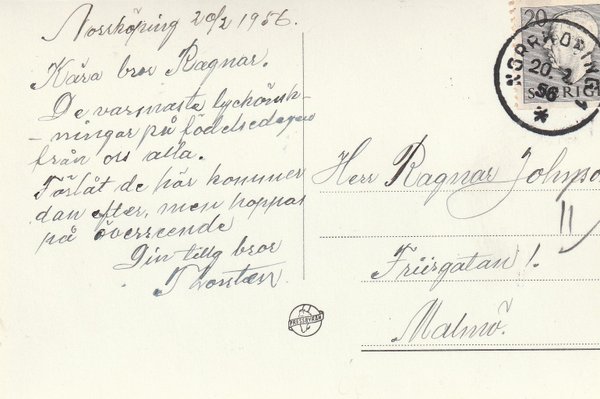 Norrköping 20/2 1956.
Kära bror Ragnar.
De varmaste lyckönsk-
-ningar på födelsedagen
från oss alla.
Förlåt de här kommer
dan efter, men hoppas
på överseende
Din tillg bror
Thorsten
20
NORRKÖPING 1
20. 2.
56
SVERIGE
Herr Ragnar Johnso
Friisgatan 1.
Malmö.
PRESSBYRÅN